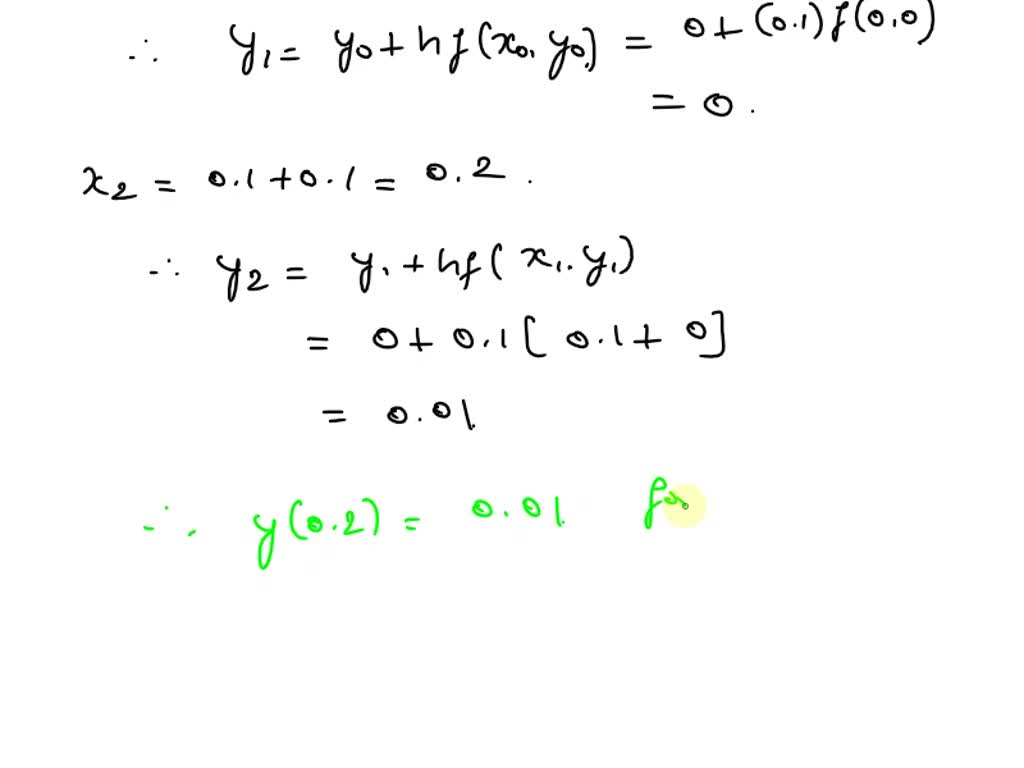 ∴ y₁ = y₀ + hf(x₀, y₀) = 0 + (0.1) f(0,0)
= 0.
x₂ = 0.1 + 0.1 = 0.2.
∴ y₂ = y₁ + hf(x₁, y₁)
= 0 + 0.1[0.1 + 0]
= 0.01
∴ y(0.2) = 0.01